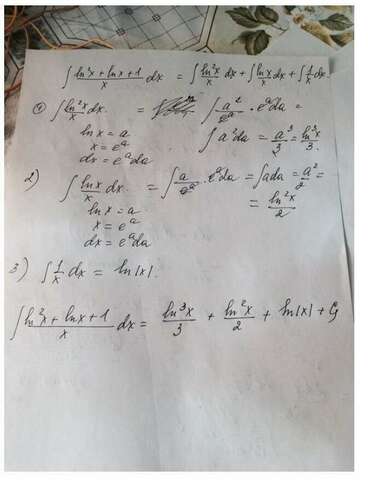 ∫ (ln²x + lnx + 1)/x dx = ∫ ln²x/x dx + ∫ lnx/x dx + ∫ 1/x dx.
1) ∫ ln²x/x dx. = ∫ a²/eᵃ · eᵃda =
lnx = a
x = eᵃ
dx = eᵃda
∫ a²da = a³/3 = ln³x/3.
2) ∫ lnx/x dx. = ∫ a/eᵃ · eᵃda = ∫ ada = a²/2 =
= ln²x/2
lnx = a
x = eᵃ
dx = eᵃda
3) ∫ 1/x dx = ln|x|.
∫ (ln²x + lnx + 1)/x dx = ln³x/3 + ln²x/2 + ln|x| + C₁